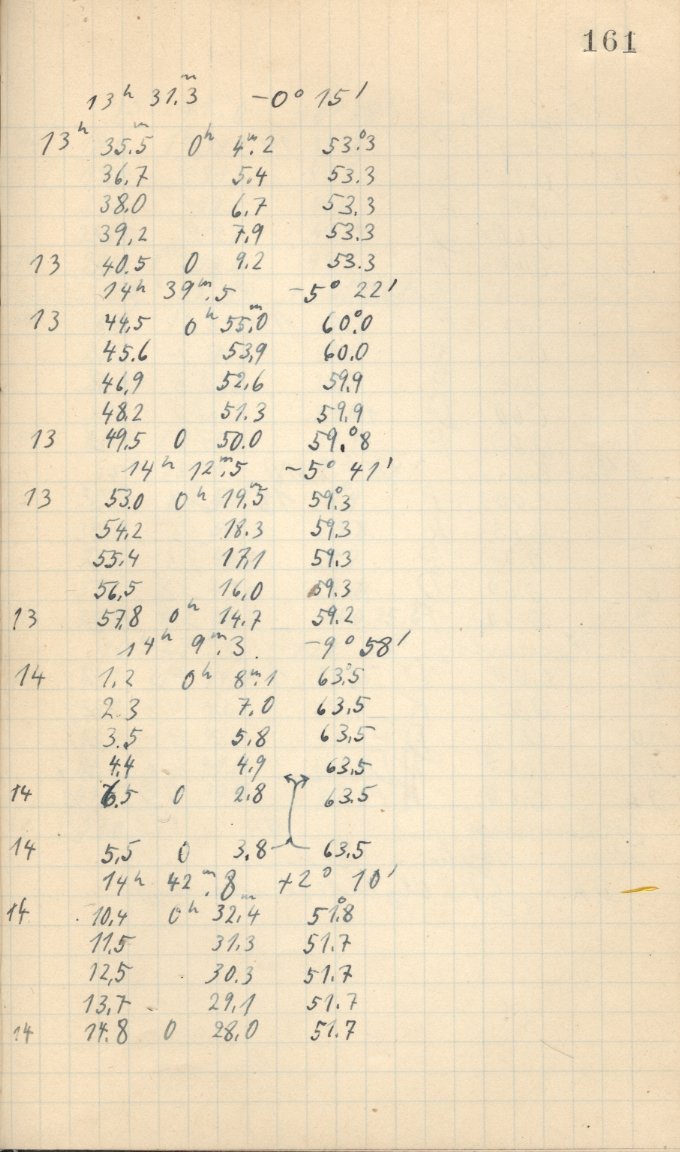 161
13ʰ 31.ᵐ3 −0° 15′
13ʰ 35.ᵐ5 0ʰ 4ᵐ.2 53.°3
36.7 5.4 53.3
38.0 6.7 53.3
39.2 7.9 53.3
13 40.5 0 9.2 53.3
14ʰ 39ᵐ.5 −5° 22′
13 44.5 0ʰ 55.ᵐ0 60.°0
45.6 53.9 60.0
46.9 52.6 59.9
48.2 51.3 59.9
13 49.5 0 50.0 59.°8
14ʰ 12ᵐ.5 −5° 41′
13 53.0 0ʰ 19.ᵐ5 59.°3
54.2 18.3 59.3
55.4 17.1 59.3
56.5 16.0 59.3
13 57.8 0ʰ 14.7 59.2
14ʰ 9ᵐ.3 −9° 58′
14 1.2 0ʰ 8ᵐ.1 63.°5
2.3 7.0 63.5
3.5 5.8 63.5
4.4 4.9 63.5
14 6.5 0 2.8 63.5
14 5.5 0 3.8 63.5
14ʰ 42ᵐ.8 +2° 10′
14 10.4 0ʰ 32.ᵐ4 51.°8
11.5 31.3 51.7
12.5 30.3 51.7
13.7 29.1 51.7
14 14.8 0 28.0 51.7